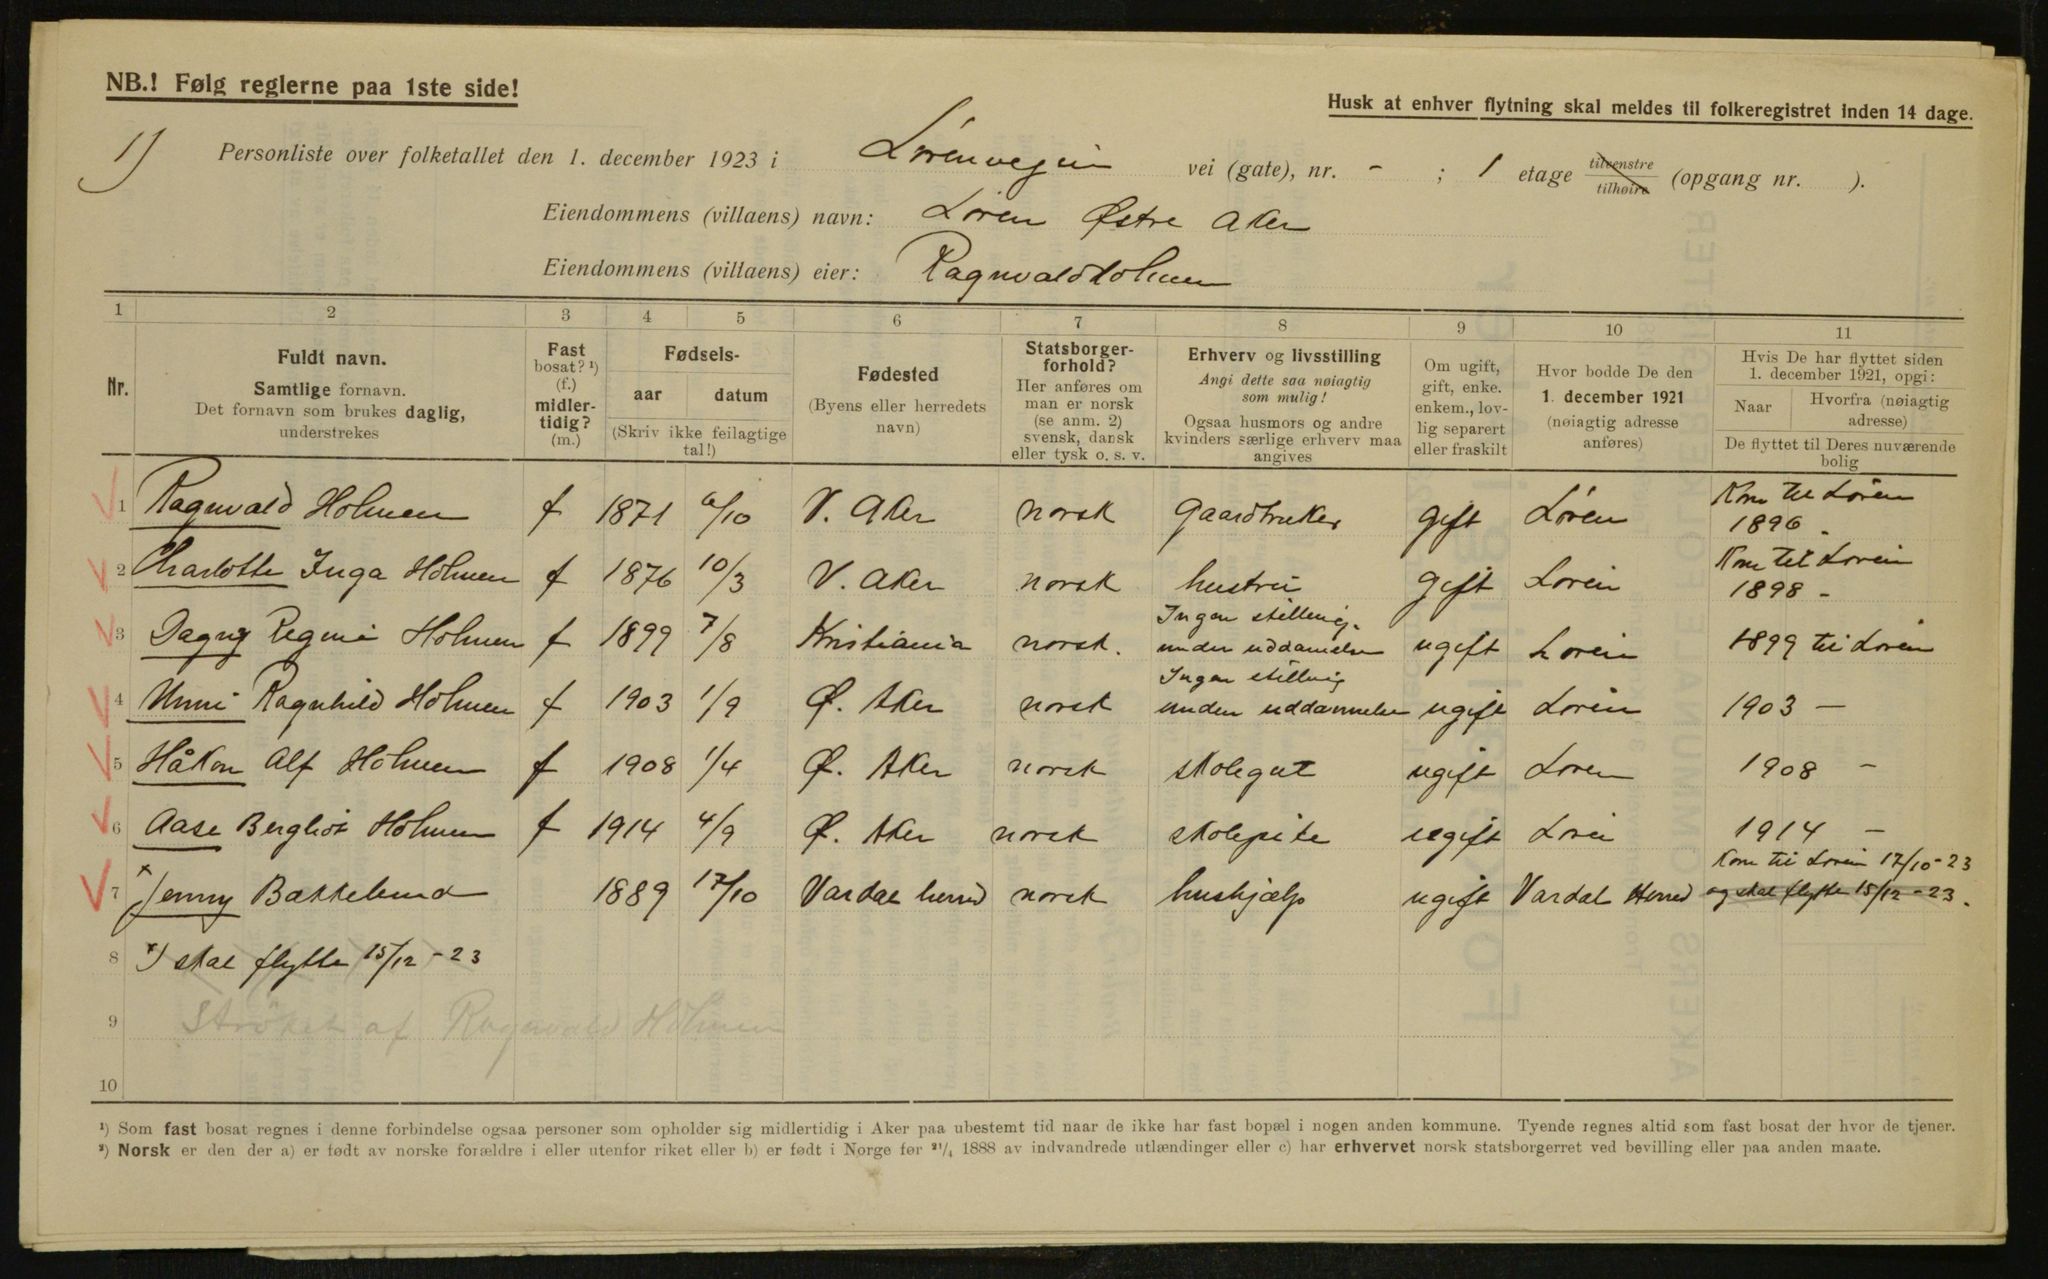 NB.! Følg reglerne paa 1ste side!
Husk at enhver flytning skal meldes til folkeregistret inden 14 dage.
1) Personliste over folketallet den 1. december 1923 i Lörenvegen vei (gate), nr. - ; 1 etage tilvenstre tilhøire (opgang nr. ).
Eiendommens (villaens) navn: Lören Østre Aker
Eiendommens (villaens) eier: Ragnvald Holmen
1 2 3 4 5 6 7 8 9 10 11
Nr.
Fuldt navn.
Samtlige fornavn.
Det fornavn som brukes daglig,
understrekes
Fast
bosat? ¹)
(f.)
midler-
tidig?
(m.)
Fødsels-
aar datum
(Skriv ikke feilagtige
tal!)
Fødested
(Byens eller herredets
navn)
Statsborger-
forhold?
Her anføres om
man er norsk
(se anm. 2)
svensk, dansk
eller tysk o. s. v.
Erhverv og livsstilling
Angi dette saa nøiagtig
som mulig!
Ogsaa husmors og andre
kvinders særlige erhverv maa
angives
Om ugift,
gift, enke.
enkem., lov-
lig separert
eller fraskilt
Hvor bodde De den
1. december 1921
(nøiagtig adresse
anføres)
Hvis De har flyttet siden
1. december 1921, opgi:
Naar Hvorfra (nøiagtig
adresse)
De flyttet til Deres nuværende
bolig
1 Ragnvald Holmen f 1871 6/10 V. Aker norsk gaardbruker gift Lören Kom til Lören
1896.
2 Charlotte Inga Holmen f 1876 10/3 V. Aker norsk hustru gift Lören Kom til Lören
1898 -
3 Dagny Regine Holmen f 1899 7/8 Kristiania norsk. Ingen stilling.
under uddannelse ugift Lören 1899 til Lören
4 Unni Ragnhild Holmen f 1903 1/9 Ø. Aker norsk Ingen stilling
under uddannelse ugift Lören 1903 —
5 Håkon Alf Holmen f 1908 1/4 Ø. Aker norsk skolegut ugift Lören 1908 -
6 Aase Bergliot Holmen f 1914 4/9 Ø. Aker norsk skolepike ugift Lören 1914 —
7 x Jenny Bækkelund 1889 17/10 Vardal herred norsk hushjælp ugift Vardal Herred Kom til Lören 17/10-23
og skal flytte 15/12-23.
8 x) skal flytte 15/12-23
9 Strøket af Ragnvald Holmen
10
¹) Som fast bosat regnes i denne forbindelse ogsaa personer som opholder sig midlertidig i Aker paa ubestemt tid naar de ikke har fast bopæl i nogen anden kommune. Tyende regnes altid som fast bosat der hvor de tjener.
²) Norsk er den der a) er født av norske forældre i eller utenfor riket eller b) er født i Norge før ²¹/₄ 1888 av indvandrede utlændinger eller c) har erhvervet norsk statsborgerret ved bevilling eller paa anden maate.